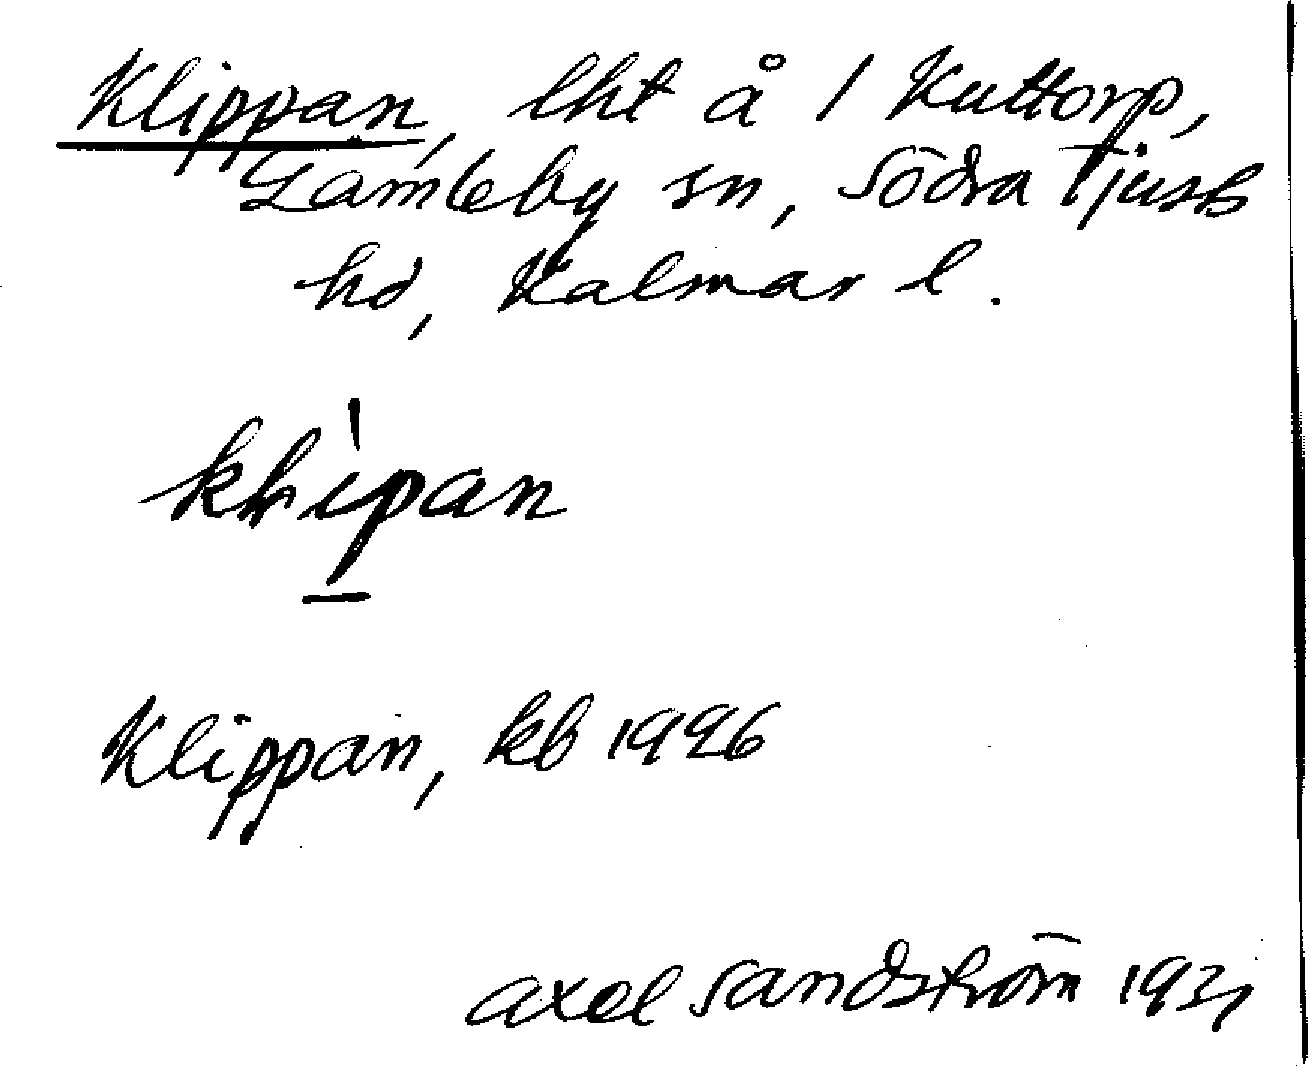 Klippan, lht å / Kuttorp,
Gamleby sn, Södra Tjusts
hd, Kalmar l.
klìpan
Klippan, kb 1926
Axel Sandström 1931